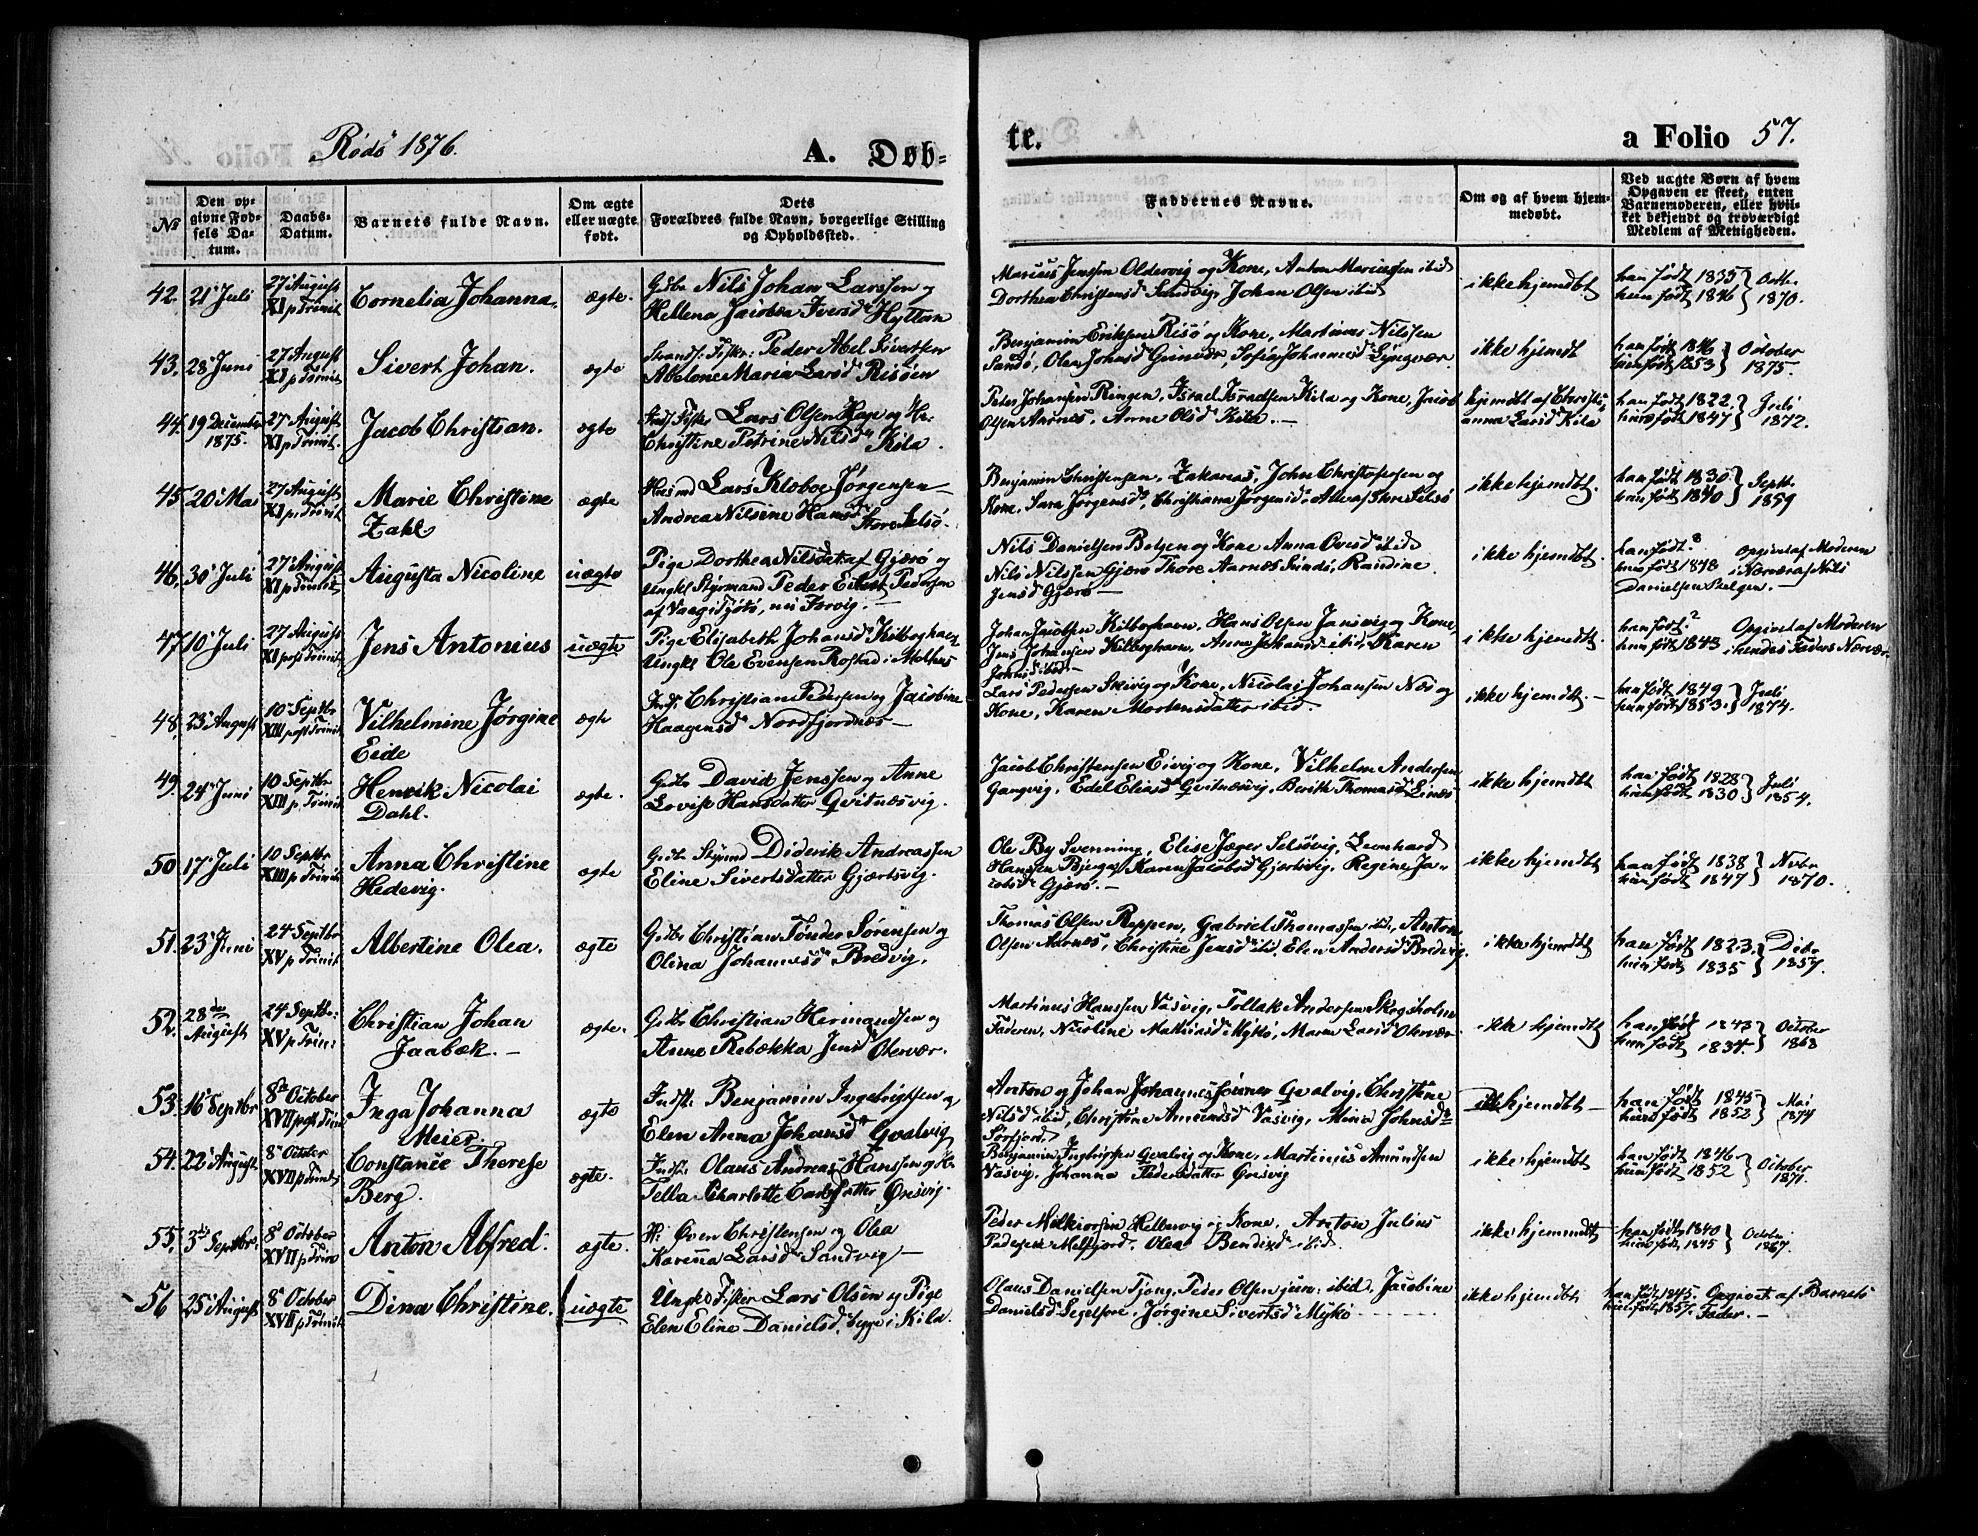 Rödö 1876.
A. Døb-
te.
a Folio 57.
№
Den op-
givne Fød-
sels Da-
tum.
Daabs-
Datum.
Barnets fulde Navn.
Om ægte
eller uægte
født.
Dets
Forældres fulde Navn, borgerlige Stilling
og Opholdssted.
Faddernes Navne.
Om og af hvem hjem-
medøbt.
Ved uægte Børn af hvem
Opgaven er skeet, enten
Barnemoderen, eller hvil-
ket bekjendt og troværdigt
Medlem af Menigheden.
42. 21 Juli
27 August
XI p Trinit
Cornelia Johanna.
ægte.
Gdbr Nils Johan Larssen og
Hellena Jacobea Iversd. Hyttan
Marius Jenssen Oldervig og Kone, Anton Mariussen ibid
Dorthea Christensd Sandvig, Johan Olsen ibid
ikke hjemdbt
han født 1835
hun født 1846
Octb.
1870.
43. 28 Juni
27 August
XI p Trinit
Sivert Johan.
ægte
Strands. Fisker: Peder Abel Sivertsen
Abelone Maria Larsd. Risöen
Benjamin Eriksen Risö og Kone, Martinus Nilssen
Sandö, Olea Johansd Grinvær, Sofia Johannesd Lyngvær
ikke hjemdt
han født 1846
hun født 1853
October
1875.
44. 19 December
1875.
27 August
XI p Trinit.
Jacob Christian.
ægte
Inds. Fisker Lars Olsen Hage og H.
Christine Petrine Nilsd. Kila.
Peder Johansen Ringen, Israel Israelsen Kila og Kone, Jacob
Olsen Aarnes, Anne Olsd Kila. —
hjemdbt af Christi-
anna Larsd Kila
han født 1822.
hun født 1847
Juli
1872.
45. 20 Mai
27 August
XI p. Trinit
Marie Christine
Zahl
ægte
Husmd Lars Kloboe Jørgensen
Andrea Nilsine Hansd. Store Selsö.
Benjamin Christensen, John Christofersen og
Kone, Sara Jørgensd, Christiana Jørgensd. Alle af Store Selsö
ikke hjemdbt.
han født 1830
hun født 1840
Septb.
1859
46. 30 Juli
27 August
XI p Trinit
Augusta Nicoline
uægte
Pige Dorthea Nilsdat. af Gjærö og
Ungkl Styrmand Peder Eilert Pedersen
Nils Danielsen Bolgen og Kone Anna Ovesd ibid
Nils Nilssen Gjærö Thore Aarnes Randine
Jensd Gjærö —
ikke hjemdbt.
han født ?
hun født
Opgivet af Moderen
i Nærvær af Nils
Danielsen
47. 10 Juli
27 August
XI post Trinit
Jens Antonius
uægte
Pige Elisabeth Johansd. Kilboghavn
Ungkl Ole Evensen Rostad i
Johan Jacobsen Kilboghavn, Hans Olsen Jansvig og Kone,
Jens Johansen Kilboghavn, Anne Johansd ibid, Karen
Johansd ibid —
ikke hjemdbt.
han født ?
hun født 1843
Opgivet af Moderen
i hendes Faders Nærvær
48. 23 August
10 Septbr
XIII post Trinit
Vilhelmine Jørgine
Eide
ægte
Inds. Christian Pedersen og Jacobine
Haagensd. Nordfjordnæs —
Lars Pedersen Skivig og Kone, Nicolai Johansen Næs og
Kone, Karen Mortensdatter ibid.
ikke hjemdbt. —
han født 1849
hun født 1853.
Juli
1874.
49. 24 Juni
10 Septbr
XIII p Trinit
Henrik Nicolai
Dahl.
ægte.
Gdbr David Jenssen og Anne
Lovise Hansdatter Qvitnæsvig.
Jacob Christensen Eivig og Kone, Vilhelm Andersen
Gangvig, Edel Eliasd Qvitnæsvig, Berith Thomasd Einæs
ikke hjemdbt
han født 1828
hun født 1830
Juli
1854.
50 17 Juli
10 Septbr
XIII p Trinit
Anna Christine
Hedevig.
ægte
Gdbr Styrmd Diderik Andreassen
Eline Sivertsdatter Gjærtsvig.
Ole By Svenning, Elise Jæger Selsövig, Leonhard
Hanssen Bjerga Karen Jacobsd Gjertsvig, Regine Ja-
cobsd Gjærö. —
ikke hjemdbt
han født 1838
hun født 1847
Nvbr
1870.
51. 23 Juni
24 Septbr
XV p Trinit
Albertine Olea.
ægte
Gdbr Christian Tønder Sörensen og
Olina Johannesd. Bredvig.
Thomas Olsen Reppen, Gabriel Thomassen ibid, Anton
Olsen Aarnes, Christine Jensd ibid Elen Andersd Bredvig.
ikke hjemdbt
han født 1823.
hun født 1835
Dcbr
1857.
52. 28de
August
24 Septbr.
XV p Trin.
Christian Johan
Jaabæk. —
ægte.
Gdbr Christian Hermandsen og
Anne Rebækka Jensd. Olervær.
Martinus Hanssen Vasvig, Tollak Andersen Skogsholm
Faderen, Nicoline Mathiasd Mykö, Maren Larsd Olervær
ikke hjemdbt
han født 1843
hun født 1834.
October
1868
53. 16 Septbr
8de October
XVII post Trin
Inga Johanna
Meier.
ægte
Inds. Benjamin Ingebrigtsen og
Elen Anna Johansd. Gvalvig
Anton og Johan Johannessønner Gvalvig, Christine
Nilsd ibid, Christine Amundsd Vasvig, Mina Johnsd
Sørfjord.
ikke hjemdbt —
han født 1845
hun født 1852
Mai
1874
54. 22 August
8 October
XVII p Trinit
Constance Therese
Berg.
ægte.
Inds. Olaus Andreas Hanssen og H.
Tella Charlotte Carlsdatter Öresvig.
Benjamin Ingebrigtsen Gvalvig og Kone, Martinus Amundsen
Vasvig, Johanna Pedersdatter Öresvig
ikke hjemdbt
han født 1846
hun født 1852
October
1871.
55. 3de Septbr.
8 October
XVII p Trin
Anton Alfred.
ægte.
H. Öven Christensen og Olea
Karenna Larsd. Sandvig —
Peder Melkiorsen Hellervig og Kone, Anton Julius
Pedersen Melfjord, Olea Bendixd ibid.
ikke hjemmdbt
han født 1840
hun født 1845
October
1867.
56 25 August
8 October
XVII p Trinit
Dina Christine.
uægte
Ungk. Fisker Lars Olsen og Pige
Elen Eline Danielsd. begge i Kila.
Olaus Danielsen Tjong, Peder Olsen jun: ibid, Jacobine
Danielsd Segelfore, Jørgine Sivertsd Mykö
ikke hjemdbt
han født 1845.
hun født 1857.
Opgivet af Barnets
Fader. —